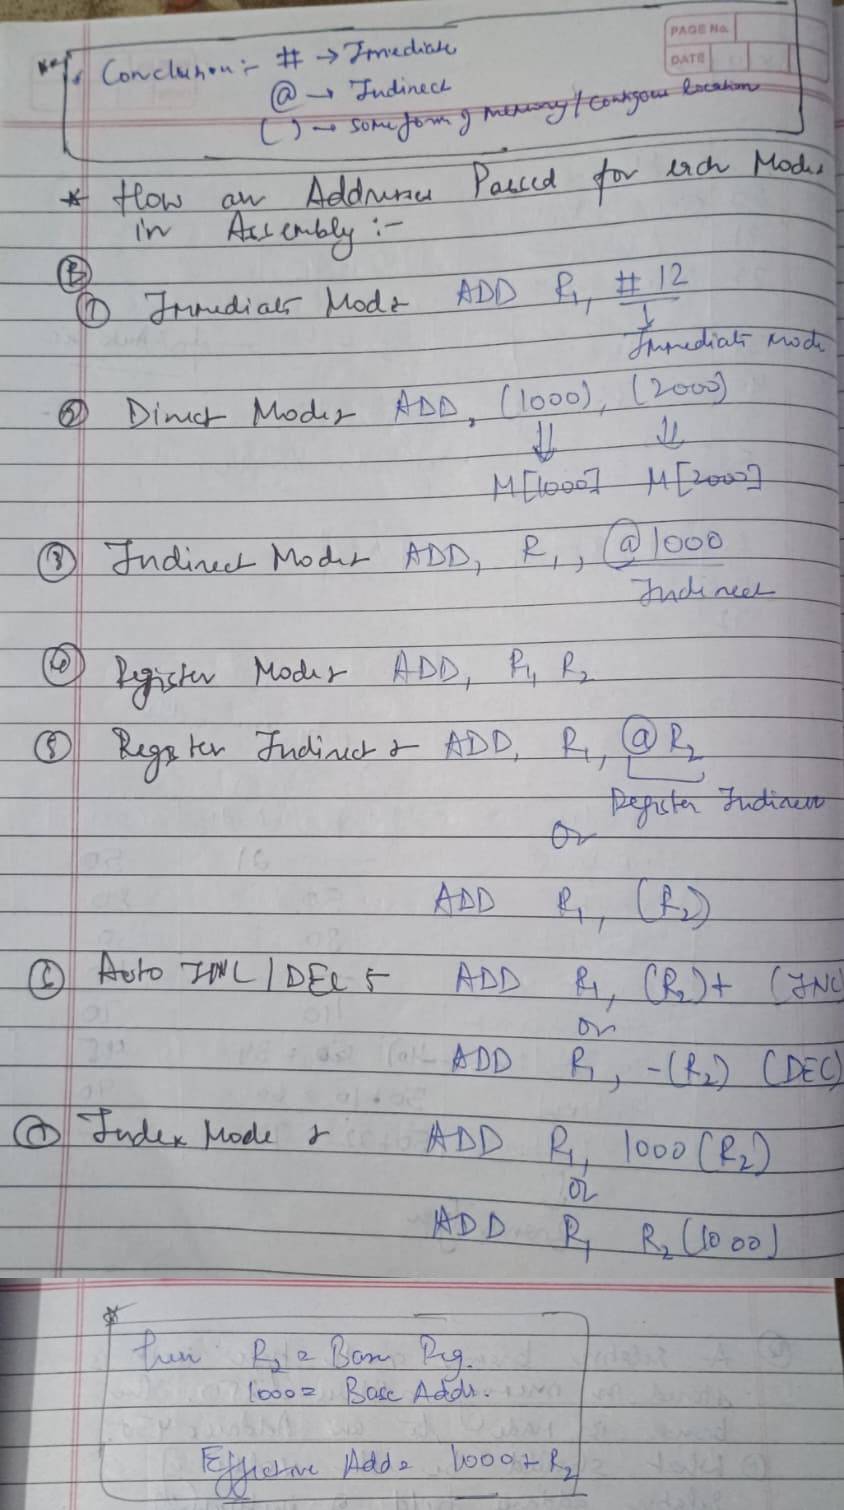 PAGE No.
DATE
Conclusion :- # → Immediate
@ → Indirect
( ) → some form of memory / contigous location
* How an Addresses Passed for each Modes
in Assembly :-
① Immediate Mode ADD R1, # 12
↓
Immediate mode
② Direct Mode ADD, (1000), (2000)
⇓ ⇓
M[1000] M[2000]
③ Indirect Mode ADD, R1, @1000
Indirect
④ Register Mode ADD, R1, R2
⑤ Register Indirect ADD, R1, @R2
Register Indirect
or
ADD R1, (R2)
⑥ Auto INC/DEC ADD R1, (R2)+ (INC)
or
ADD R1, -(R2) (DEC)
⑦ Index Mode ADD R1, 1000 (R2)
or
ADD R1 R2 (1000)
*
R2 = Base Reg.
1000 = Base Addr.
Effective Add = 1000 + R2